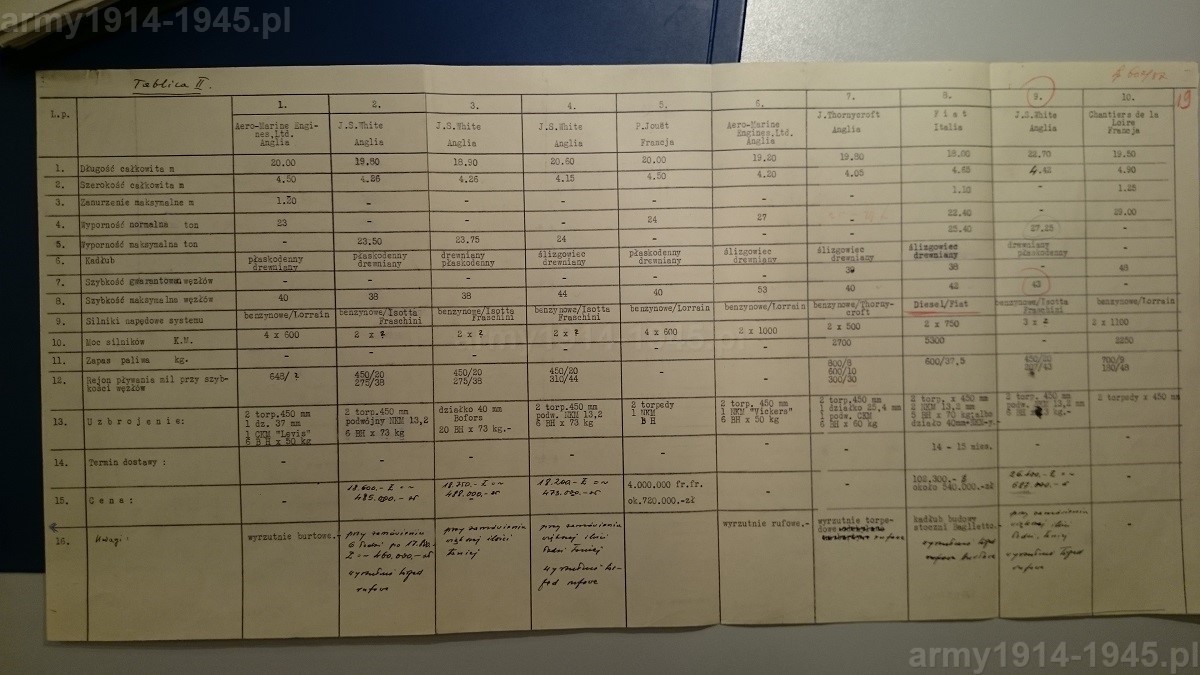 army1914-1945.pl
Tablica II.
19
L.p.
1. 2. 3. 4. 5. 6. 7. 8. 9. 10.
Aero-Marine Engi- J.S.White J.S.White J.S.White P.Jouët Aero-Marine J.Thornycroft F i a t J.S.White Chantiers de la
nes,Ltd. Engines,Ltd. Loire
Anglia Anglia Anglia Anglia Francja Anglia Anglia Italia Anglia Francja
1. Długość całkowita m 20.00 19.80 18.90 20.60 20.00 19.20 19.80 18.00 22.70 19.50
2. Szerokość całkowita m 4.50 4.26 4.26 4.15 4.50 4.20 4.05 4.65 4.42 4.90
3. Zanurzenie maksymalne m 1.20 - - - - - - 1.10 - 1.25
4. Wyporność normalna ton 23 - - - 24 27 - 22.40 - 29.00
5. Wyporność maksymalna ton - 23.50 23.75 24 - - - 25.40 27.25 -
6. Kadłub płaskodenny płaskodenny drewniany ślizgowiec płaskodenny ślizgowiec ślizgowiec ślizgowiec drewniany -
drewniany drewniany płaskodenny drewniany drewniany drewniany drewniany drewniany płaskodenny
7. Szybkość gwarantowana węzłów - - - - - - 39 38 - 48
8. Szybkość maksymalna węzłów 40 38 38 44 40 53 40 42 43 -
9. Silniki napędowe systemu benzynowe/Lorrain benzynowe/Isotta benzynowe/Isotta benzynowe/Isotta benzynowe/Lorrain benzynowe/Lorrain benzynowe/Thorny- Diesel/Fiat benzynowe/Isotta benzynowe/Lorrain
Fraschini Fraschini Fraschini croft Fraschini
10. Moc silników K.M. 4 x 600 2 x ? 2 x ? 2 x ? 4 x 600 2 x 1000 2 x 500 2 x 750 3 x ? 2 x 1100
11. Zapas paliwa kg. - - - - - - 2700 5300 - 2250
12. Rejon pływania mil przy szyb- 648/ ? 450/20 450/20 450/20 - - 800/8 600/37,5 450/20 700/9
kości węzłów 275/38 275/38 310/44 600/10 307/43 150/48
300/30
13. U z b r o j e n i e : 2 torp.450 mm 2 torp.450 mm działko 40 mm 2 torp.450 mm 2 torpedy 2 torp. 450 mm 2 torp.450 mm 2 torp. x 450 mm 2 torp. 450 mm 2 torpedy x 450 mm
1 dz. 37 mm podwójny NKM 13,2 Bofors podw. NKM 13,2 1 NKM 1 NKM "Vickers" 1 działko 25,4 mm 2 NKM 13,2 mm podw. NKM 13,2
1 CKM "Levis" 6 BH x 73 kg 20 BH x 73 kg.- 6 BH x 73 kg B H 6 BH x 50 kg 1 podw. CKM 5 BH x 70 kg;albo 6 BH x 73 kg.-
6 B H x 50 kg 6 BH x 60 kg działo 40mm+NKM-y.
14. Termin dostawy : - - - - - - - 14 - 15 mies. - -
15. C e n a : - 18.600.- £ = ~ 18.750.- £ = ~ 18.200.- £ = ~ 4.000.000 fr.fr. - - 102.300.- $ 26.400.- £ = ~ -
485.000.- zł 488.000.- zł 473.000.- zł ok.720.000.-zł około 540.000.-zł 687.000.- zł
16. Uwagi: wyrzutnie burtowe.- przy zamówieniu przy zamówieniu przy zamówieniu wyrzutnie rufowe.- wyrzutnie torpe- kadłub budowy przy zamówieniu
większej ilości większej ilości dowe rufowe stoczni Baglietto.-
460.000.- zł taniej
rufowe rufowe rufowe
army1914-1945.pl
army1914-1945.pl